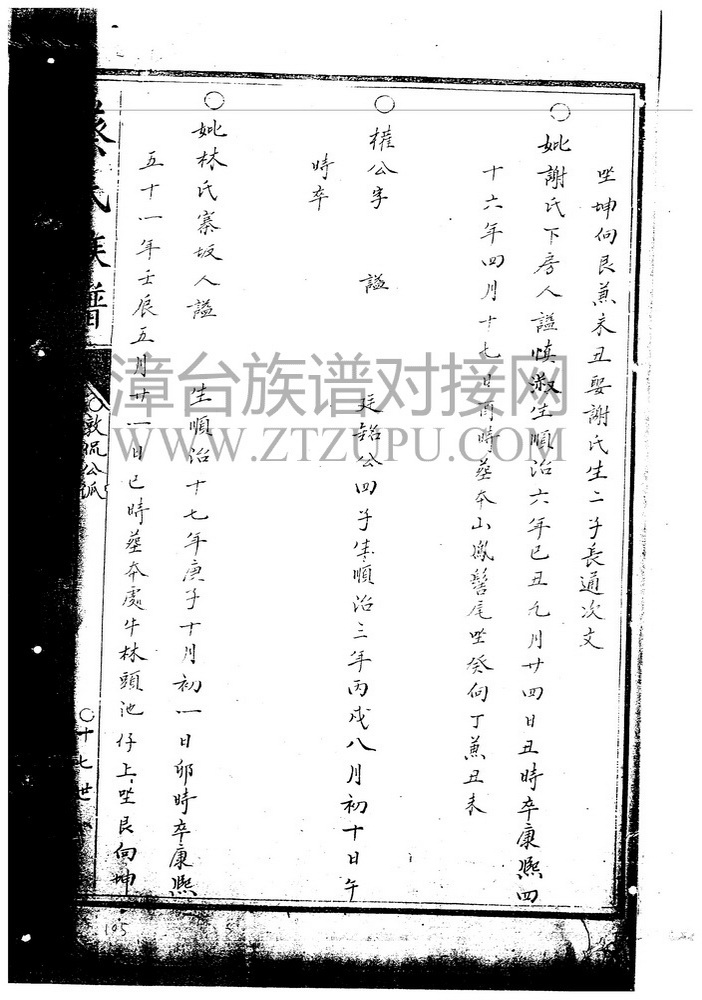 坐坤向艮兼未丑娶謝氏生二子長通次文
○妣謝氏下房人謚慎淑生順治六年己丑九月廿四日丑時卒康熙四
十六年四月十七日酉時葬本山鳳髻尾坐癸向丁兼丑未
○權公字 謚 廷銘公四子生順治三年丙戌八月初十日午
時卒
○妣林氏寨坂人謚 生順治十七年庚子十月初一日卯時卒康熙
五十一年壬辰五月廿一日巳時葬本處牛林頭池仔上坐艮向坤
蔡氏族譜
○敦侃公派
○十七世
105
漳台族谱对接网
WWW.ZTZUPU.COM